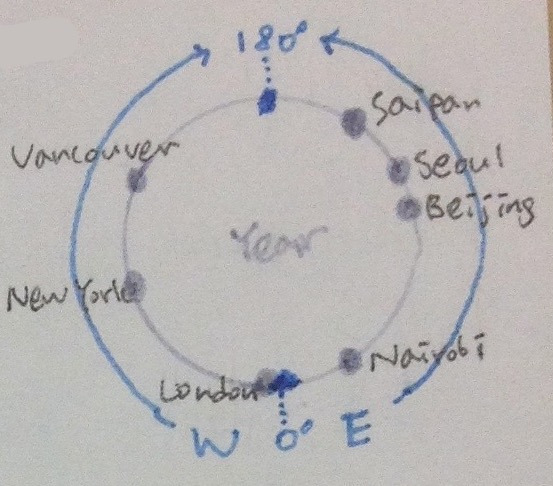 180°
Saipan
Vancouver
Seoul
Beijing
Year
New York
Nairobi
London
W 0° E